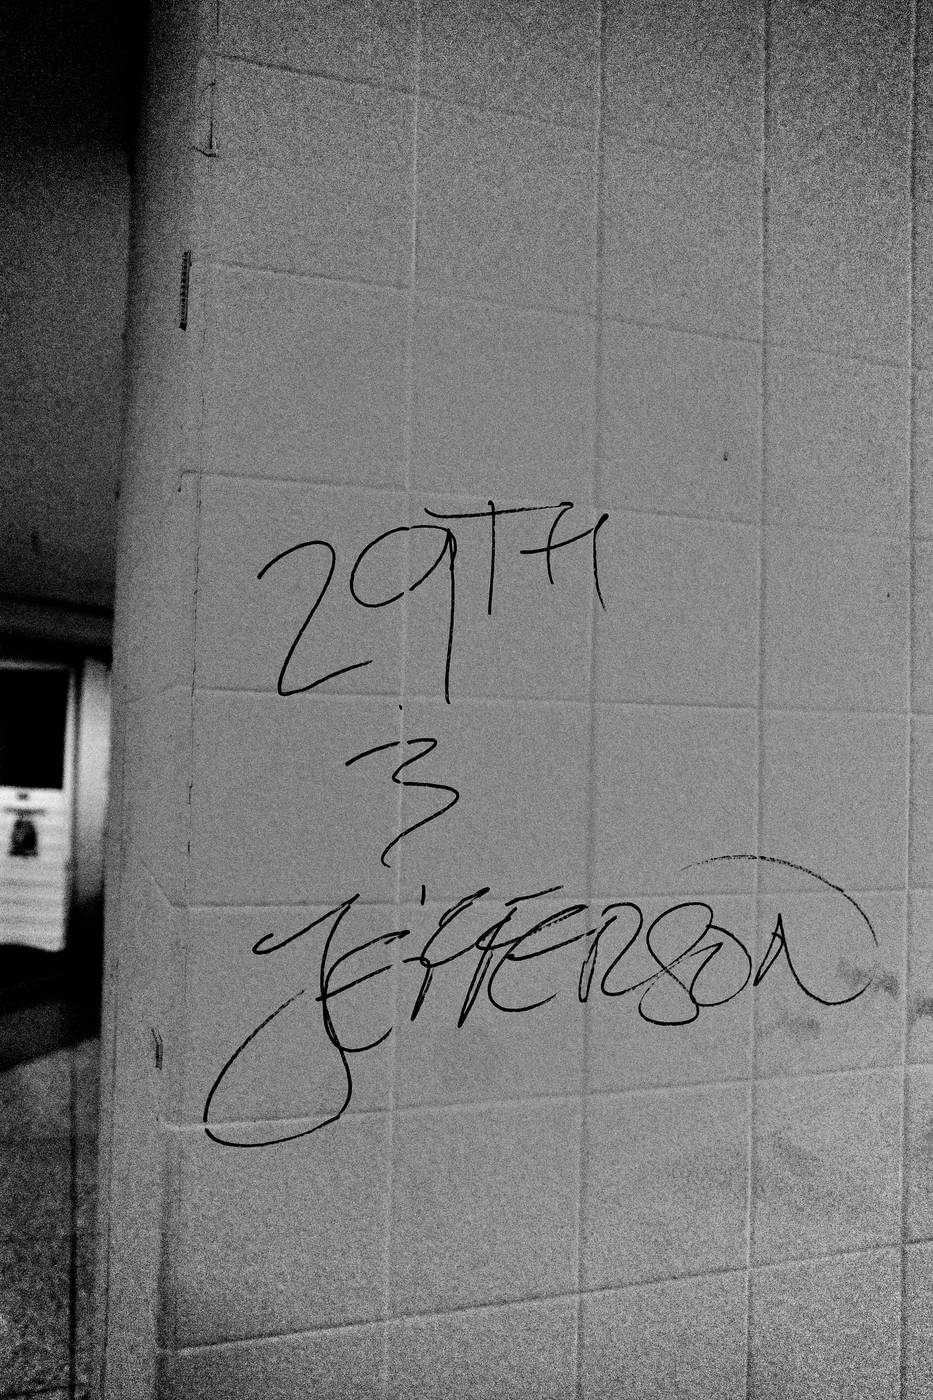 29TH
3
JEFFERSON